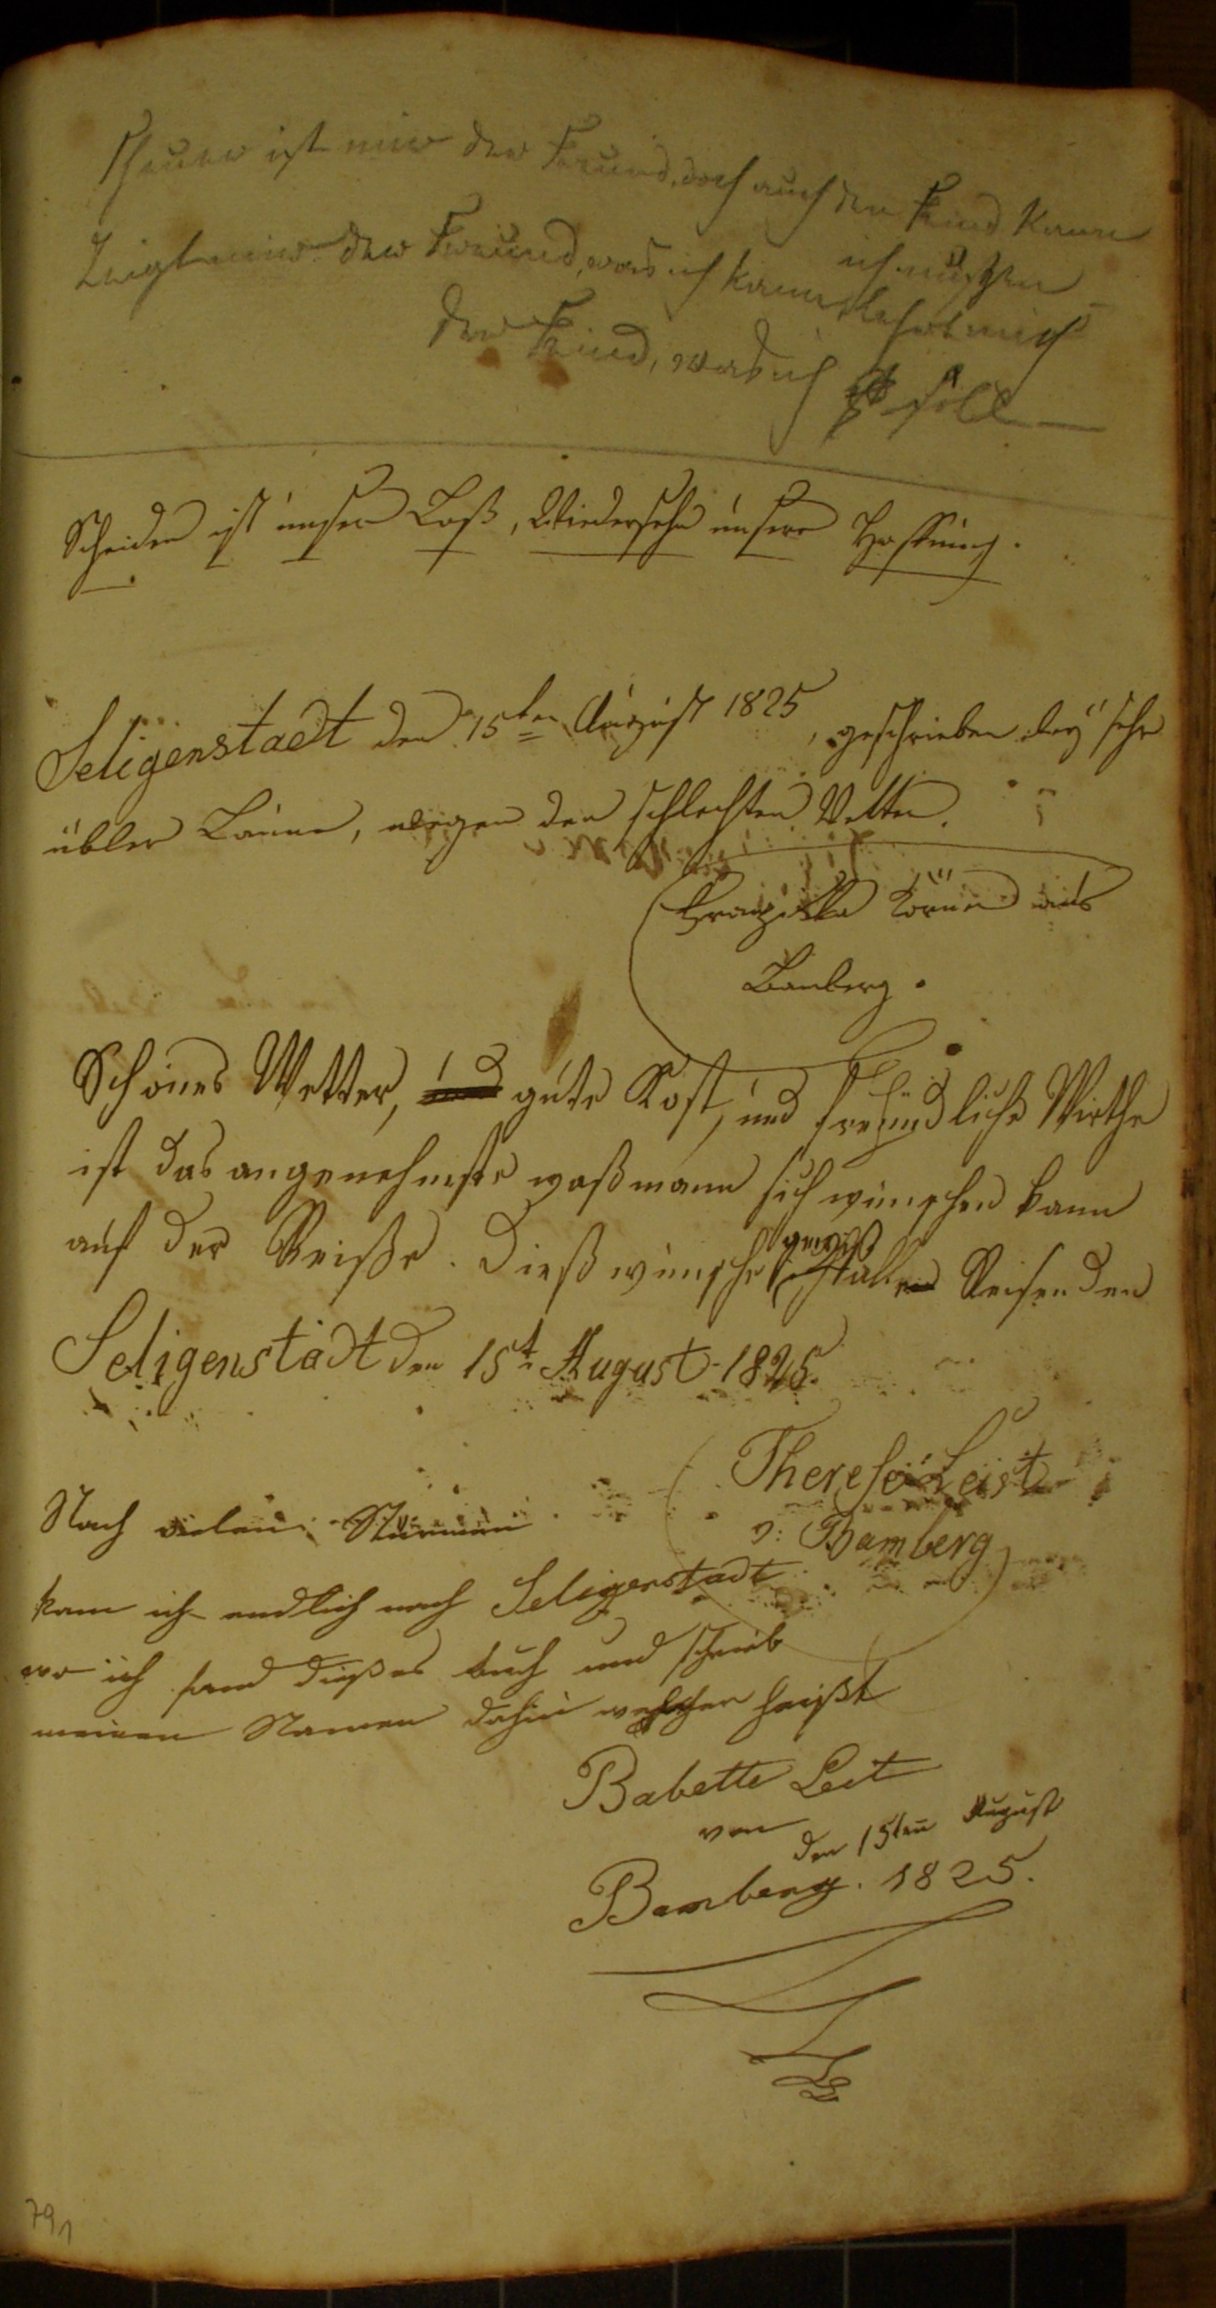 Theuer ist mir der Freund, doch auch den Feind kann
ich nützen
Zeigt mir der Freund, was ich kann, lehrt mich
der Feind, was ich soll
Scheiden ist unser Loß, Wiedersehn unsere Hoffnung.
Seligenstadt den 15ten August 1825, geschrieben bey sehr
übler Laune, wegen den schlechten Wetter.
Franziska Körner aus
Bamberg.
Schönes Wetter, und gute Kost, und freundliche Wirthe
ist das angenehmste waß mann sich wünschen kann
auf der Reiße. Dieß wünscht gewiß allen Reisenden
Seligenstadt den 15t August 1825.
Therese Leist
v: Bamberg
Nach vielen Stürmen
kam ich endlich nach Seligenstadt
wo ich fand dießes buch und schrieb
meinen Namen dahin welcher heißt
Babette Leit
von
den 15ten August
Bamberg. 1825.
791